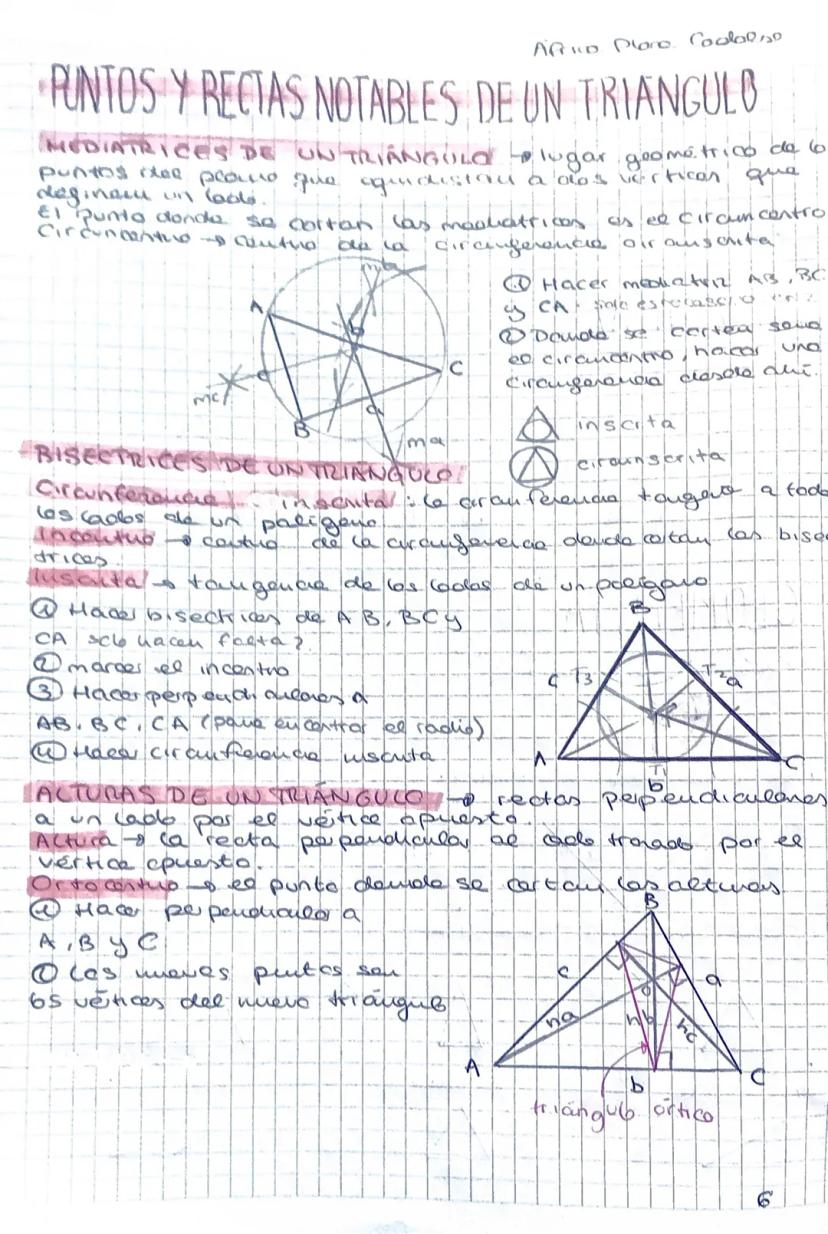 PUNTOS Y RECTAS NOTABLES DE UN TRIÁNGULO
MEDIATRICES DE UN TRIÁNGULO → lugar geométrico de lo
puntos del plano que equidistan a dos vértices que
definen un lado.
El punto donde se cortan las mediatrices es el circuncentro
Circuncentro → centro de la circunferencia circunscrita
① Hacer mediatriz AB, BC
y CA
② Donde se cortea sera
el circuncentro, hacer una
circunferencia desde ahí.
A
B
C
b
c
a
mb
mc
ma
inscrita
circunscrita
BISECTRICES DE UN TRIÁNGULO
Circunferencia inscrita: la circunferencia tangente a todo
los lados de un polígono
Incentro → centro de la circunferencia donde cortan las bisec
trices.
Inscrita → tangencia de los lados de un polígono
① Hacer bisectrices de AB, BC y
CA solo hacen falta 2
② marcar el incentro
③ Hacer perpendiculares a
AB, BC, CA (para encontrar el radio)
④ Hacer circunferencia inscrita
B
c T3
T2 a
A
T1
C
b
ALTURAS DE UN TRIÁNGULO → rectas perpendiculares
a un lado por el vértice opuesto.
Altura → la recta perpendicular al lado trazado por el
vértice opuesto.
Ortocentro → el punto donde se cortan las alturas
① Hacer perpendicular a
A, B y C
② Los nuevos puntos son
los vértices del nuevo triángulo
B
c
a
O
ha
hb
hc
A
b
C
triángulo órtico
6